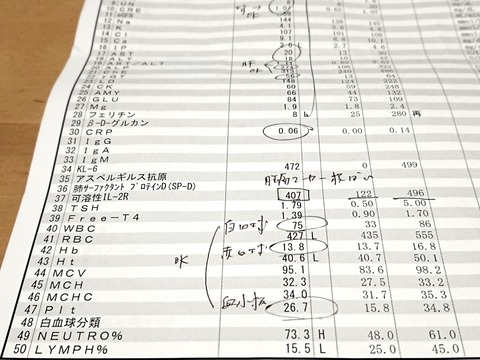 10 CRE
12 Na 144
13 K 4.1
14 Cl 107
15 Ca 9.1
16 IP 2.6 L
17 AST 20
18 ALT 18
22 γ-GT 56
23 LD 146 124 222
24 CK 60 59 248
25 AMY 66 44 132
26 GLU 84 73 109
27 Mg 1.9 1.8 2.4
28 フェリチン 8 L 25 280 再
29 β-D-グルカン
30 CRP 0.06 0.00 0.14
31 IgG
32 IgA
33 IgM
34 KL-6 472 0 499
35 アスペルギルス抗原
36 肺サーファクタント プロテインD(SP-D)
37 可溶性IL-2R 407 122 496
38 TSH 1.79 0.50 5.00
39 Free-T4 1.39 0.90 1.70
40 WBC 白血球 75 33 86
41 RBC 427 L 435 555
42 Hb 赤血球 13.8 13.7 16.8
43 Ht OK 40.6 L 40.7 50.1
44 MCV 95.1 83.6 98.2
45 MCH 32.3 27.5 33.2
46 MCHC 34.0 31.7 35.3
47 Plt 血小板 26.7 15.8 34.8
48 白血球分類
49 NEUTRO% 73.3 H 48.0 61.0
50 LYMPH% 15.5 L 25.0 45.0